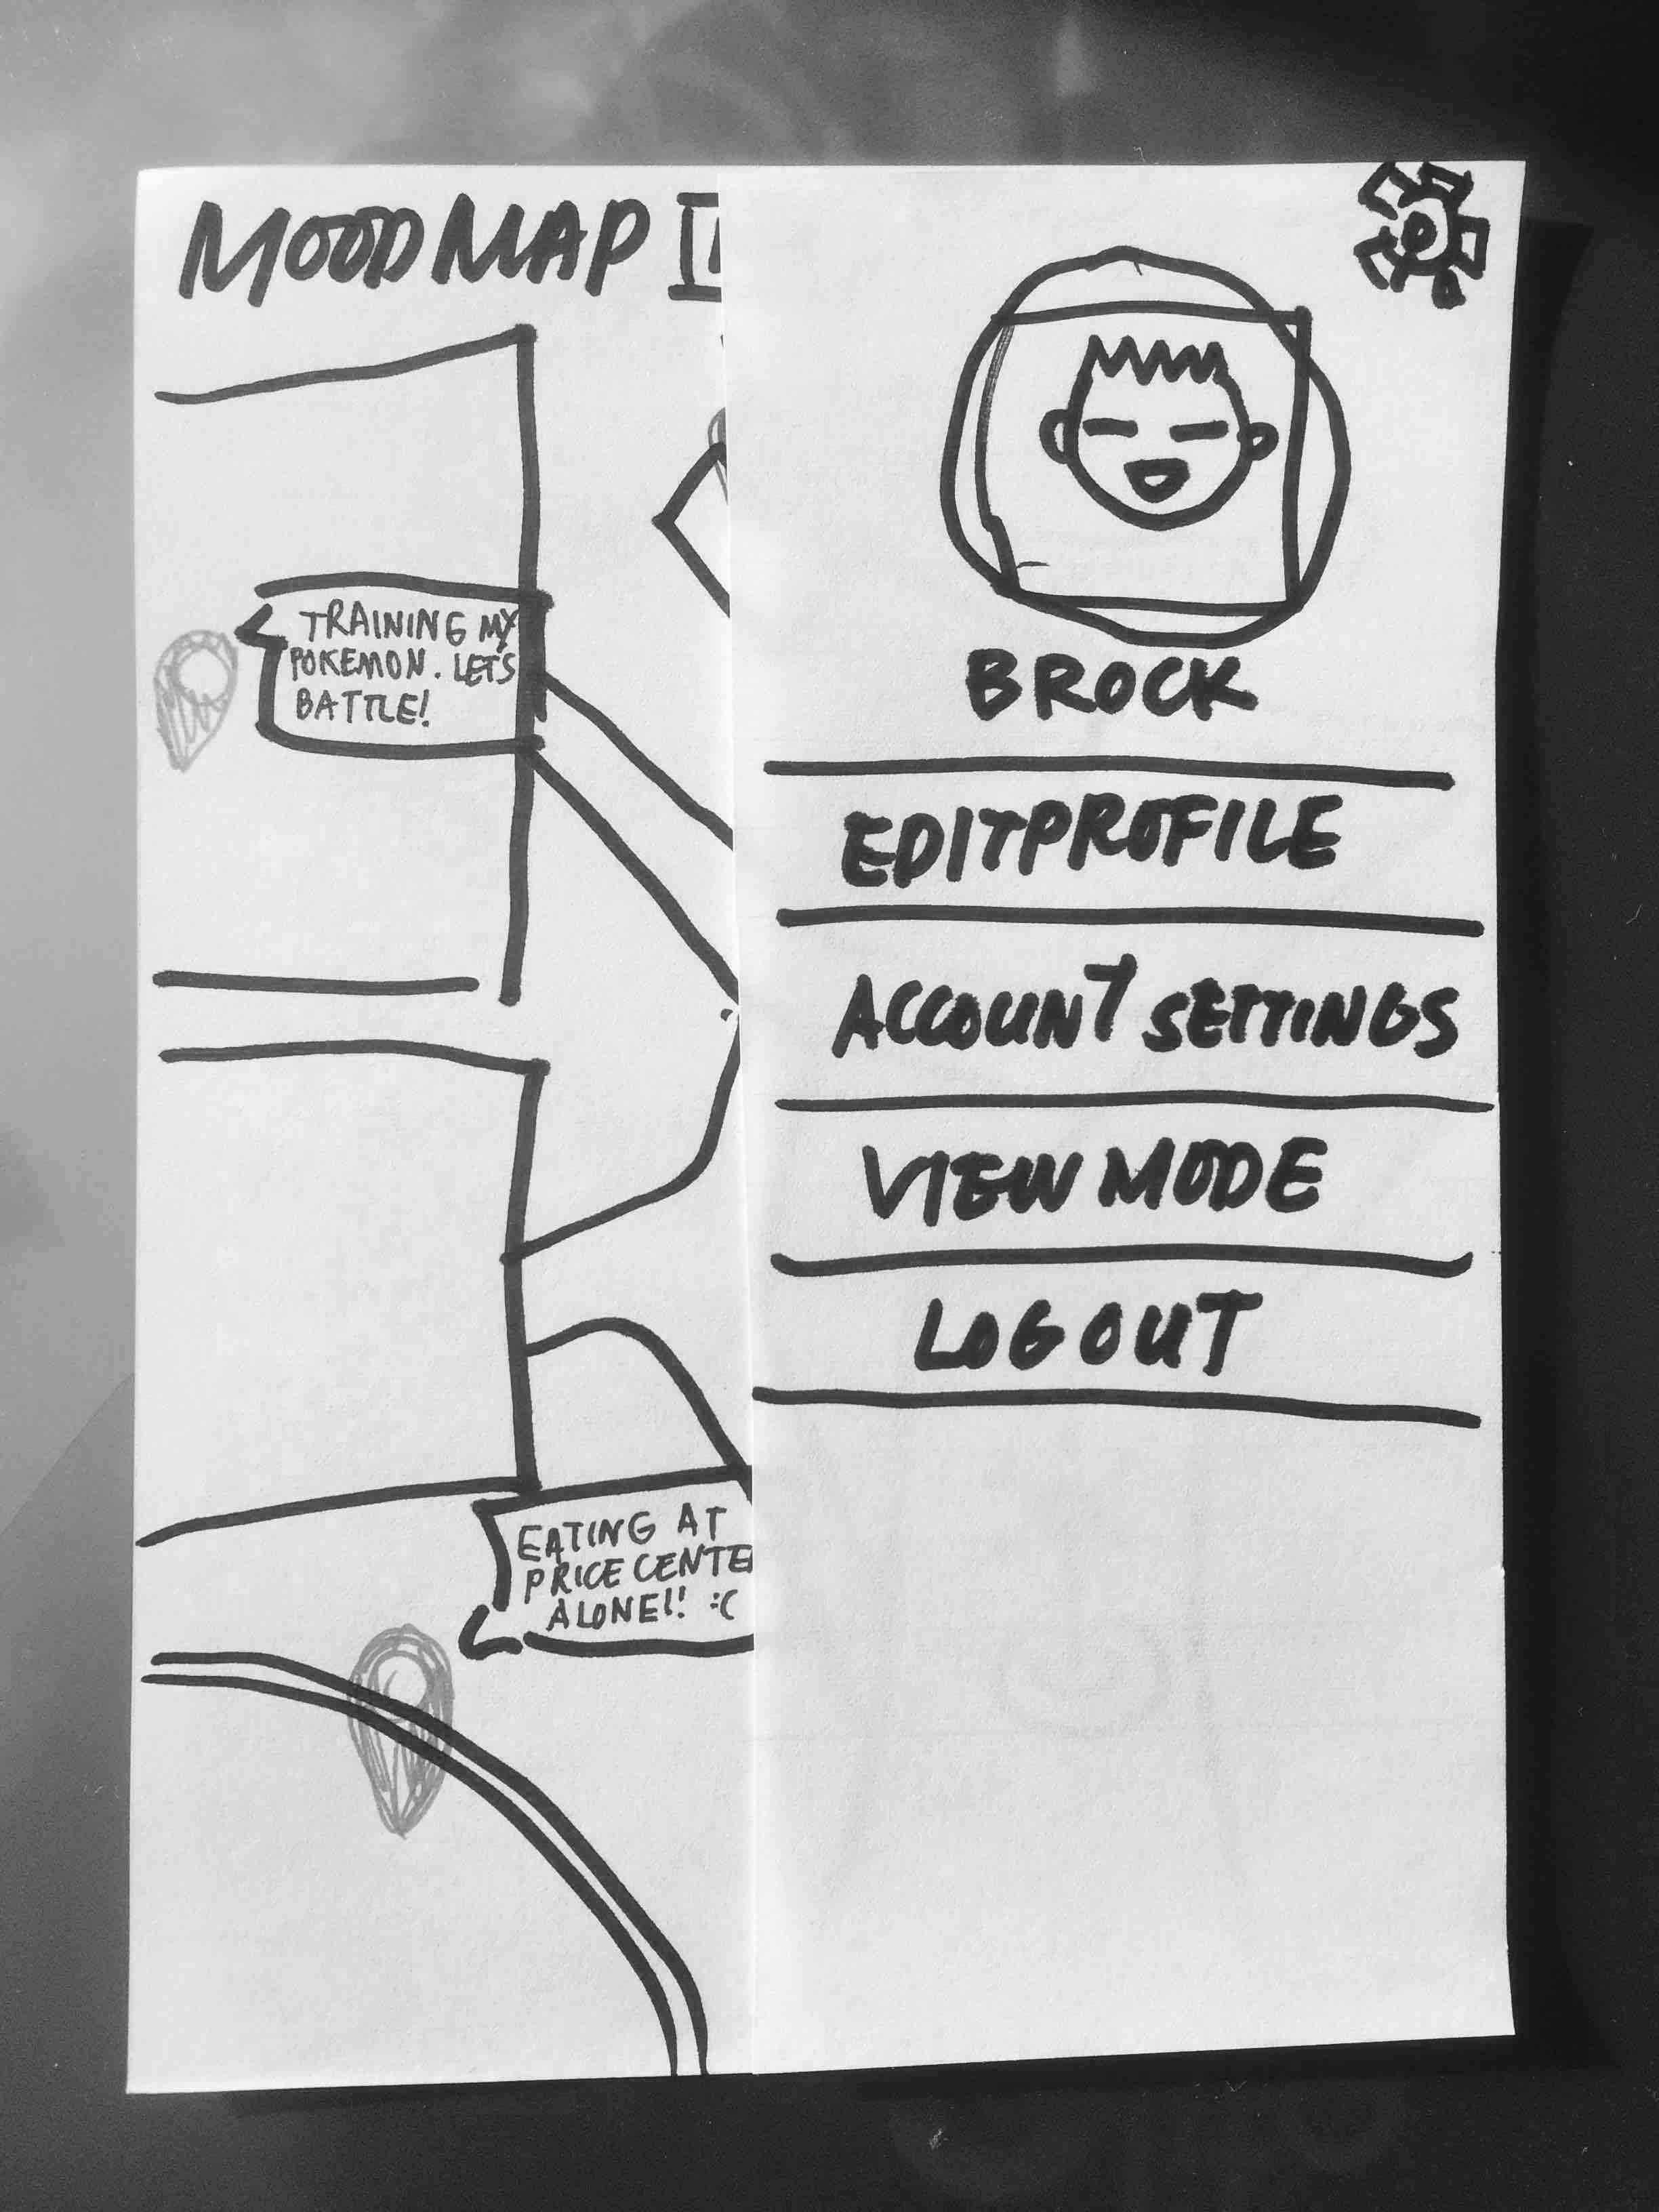 MOOD MAP
TRAINING MY
POKEMON. LET'S
BATTLE!
EATING AT
PRICE CENTE
ALONE!! :C
BROCK
EDIT PROFILE
ACCOUNT SETTINGS
VIEW MODE
LOG OUT